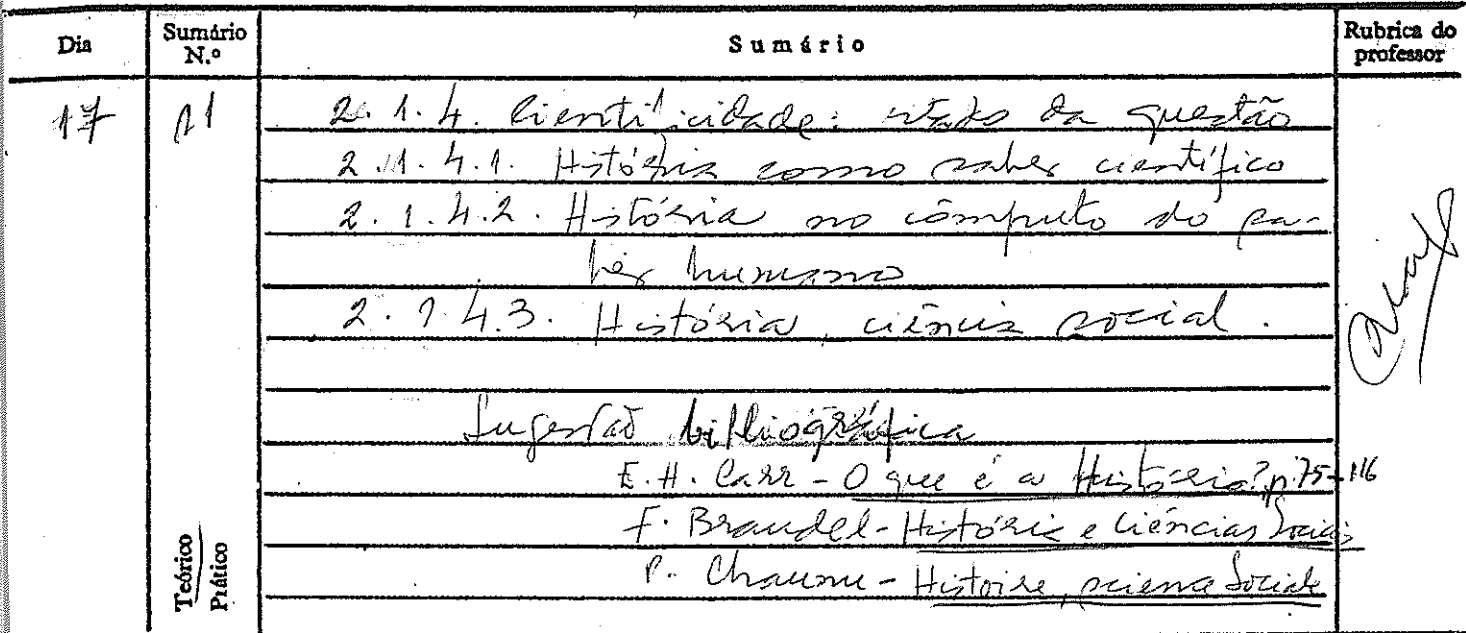 Dia
Sumário N.º
Sumário
Rubrica do professor
17
11
2.1.4. Cientificidade: estado da questão
2.1.4.1. História como saber científico
2.1.4.2. História no cômputo do sa-
ber humano
2.1.4.3. História, ciência social.
Sugestão bibliográfica
E. H. Carr - O que é a História? p. 75-116
F. Braudel - História e Ciências Sociais
P. Chaunu - Histoire, science sociale
Teórico
Prático